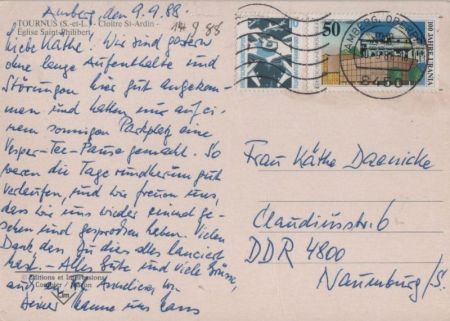 Amberg, den 9.9.88.
14.9.88
TOURNUS (S.-et-L.) - Cloître St-Ardin -
Eglise Saint-Philibert
Liebe Käthe! Wir sind gestern
ohne lange Aufenthalte und
Störungen hier gut angekom-
men und hatten nur auf ei-
nem sonnigen Parkplatz eine
Vesper-Tee-Pause gemacht. So
waren die Tage rundherum gut
verlaufen, und wir freuen uns,
dass wir uns wieder einmal ge-
sehen und gesprochen haben. Vielen
Dank, dass Du dies alles lanciert
hast. - Alles Gute und viele Grüsse,
auch an
Deiner Hanne und Hans
© Editions et Impressions
Combier
50
100 JAHRE URANIA
AMBERG, OBERPF
8450
Frau Käthe Daenicke
Claudiusstr. 6
DDR 4800
Naumburg/S.